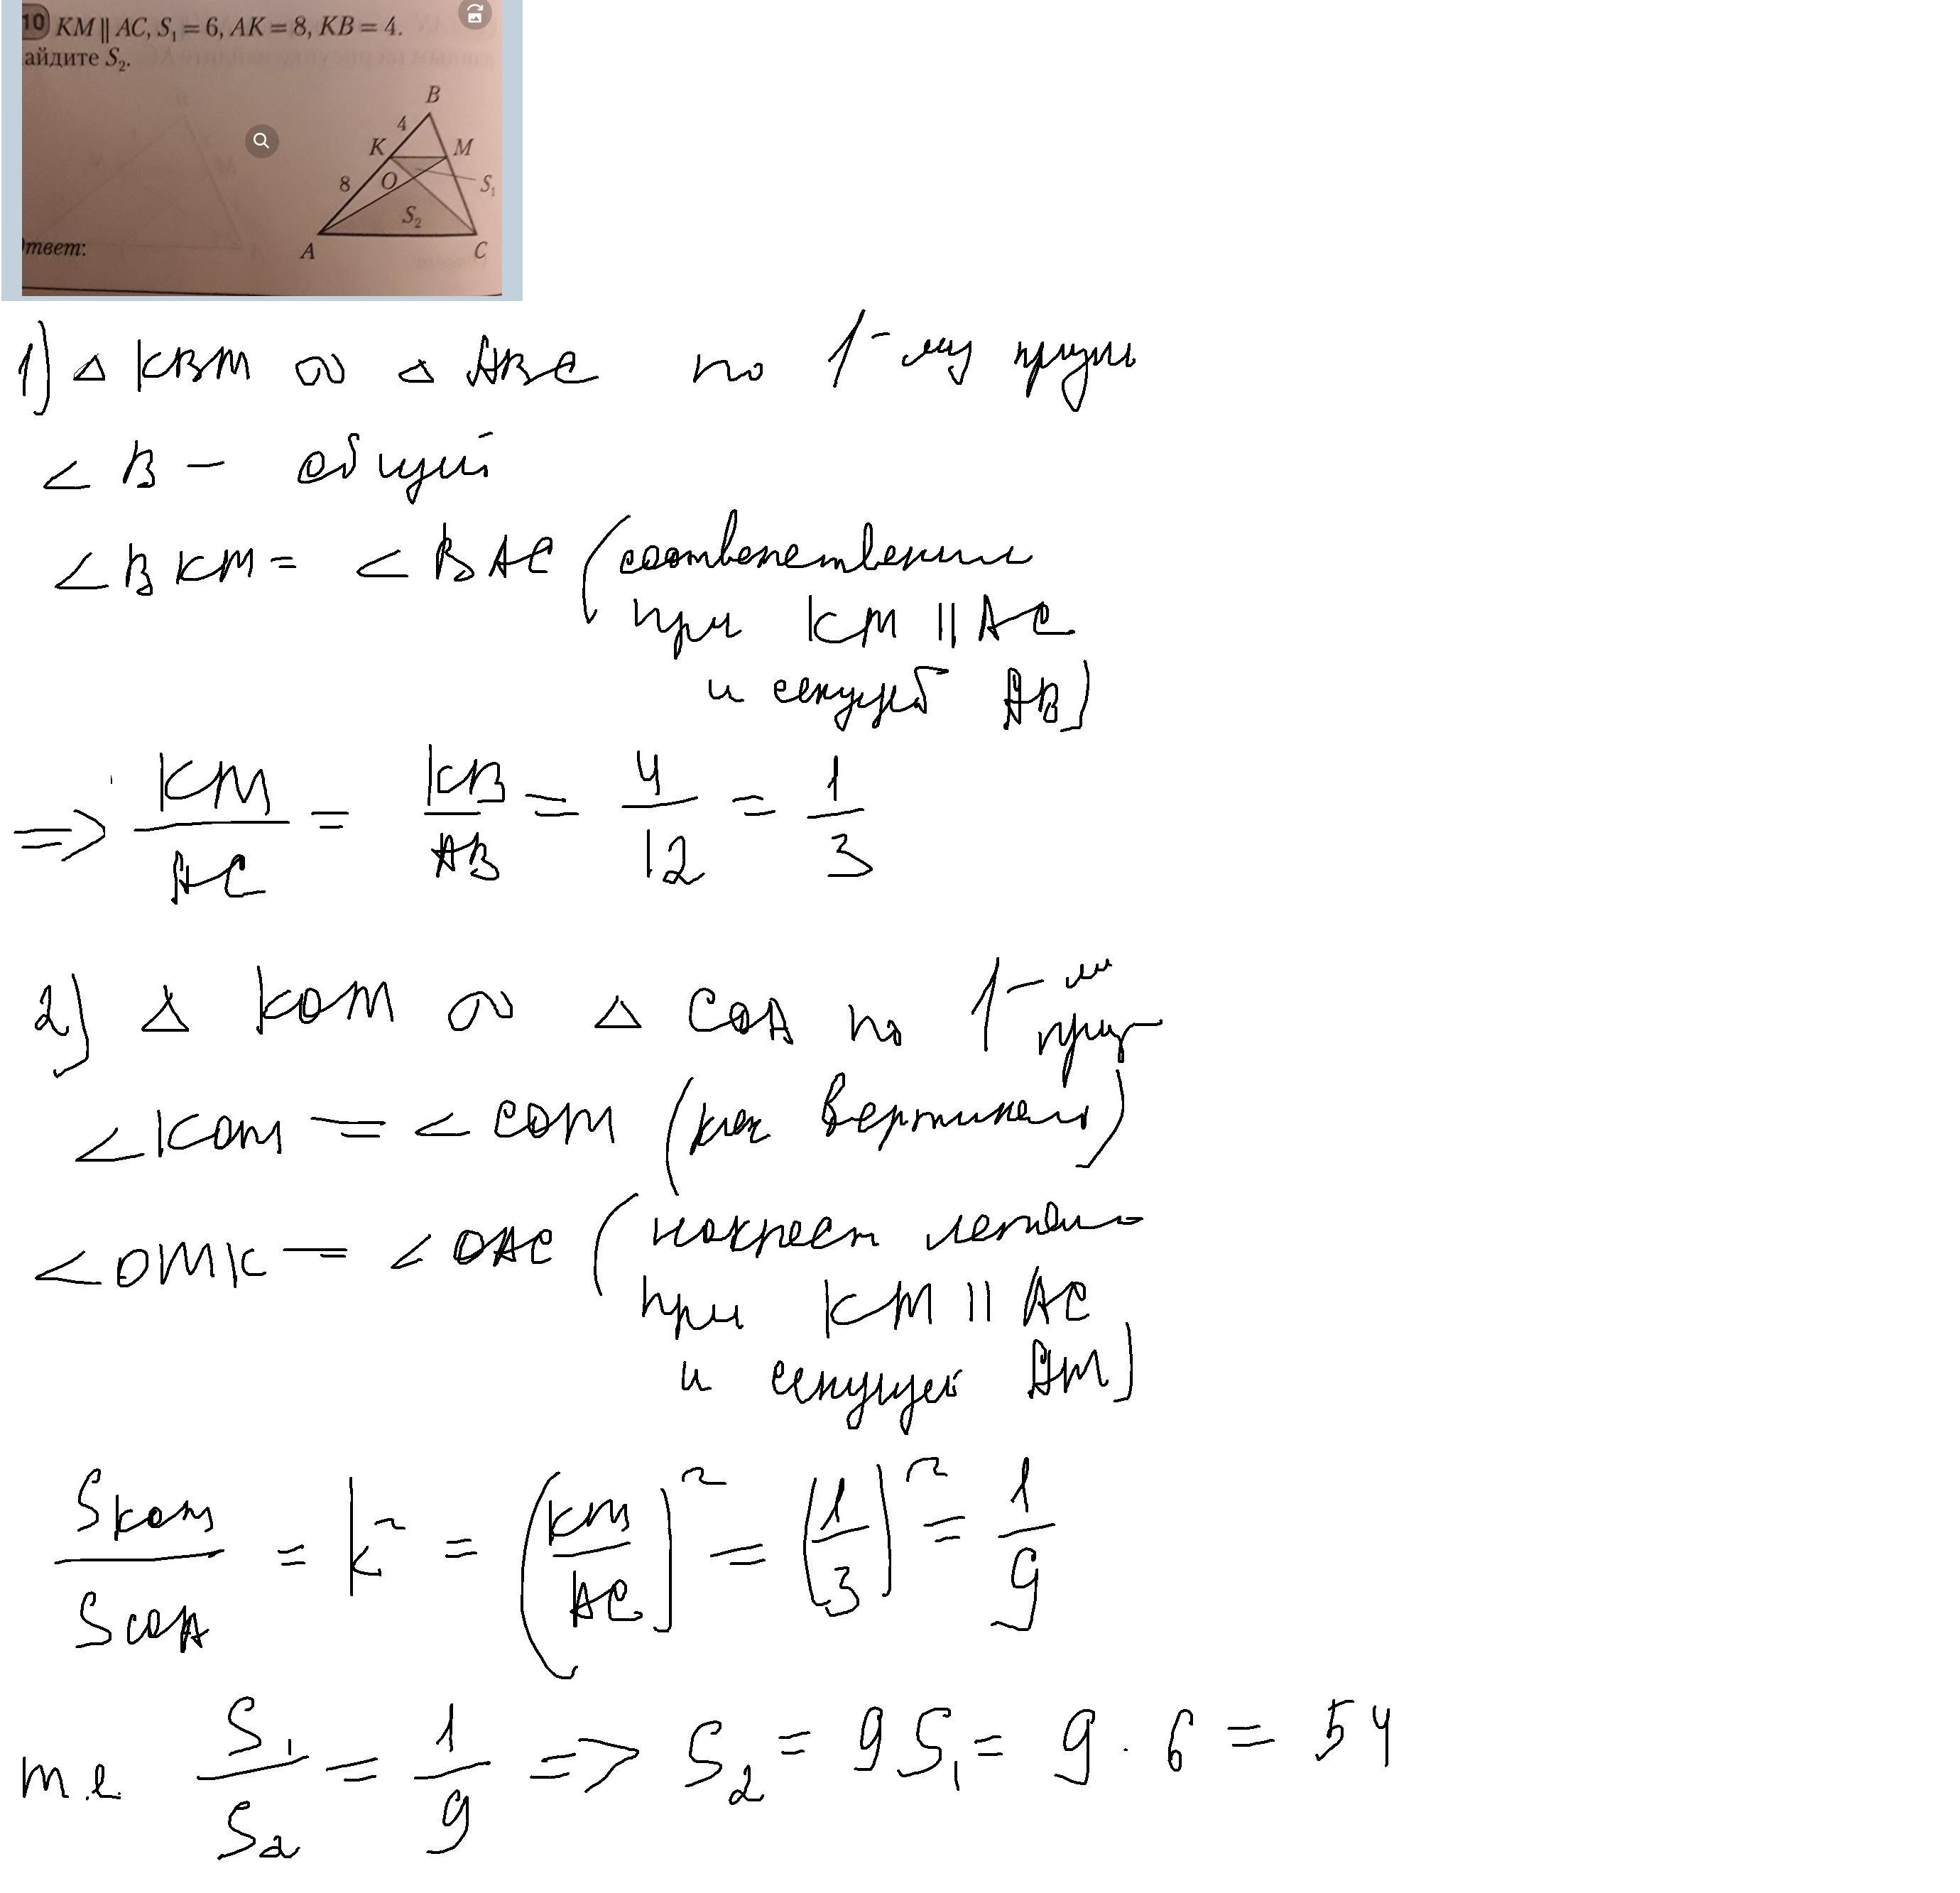 10 KM || AC, S₁ = 6, AK = 8, KB = 4.
айдите S₂.
B
4
K
M
8
O
S₁
S₂
A
C
твет:
1) △ KBM ∾ △ ABC по 1-му призн
∠ B – общий
∠ BKM = ∠ BAC (соответственн
при KM || AC
и секущей AB)
=> KM/AC = KB/AB = 4/12 = 1/3
2) △ KOM ∾ △ COA по 1-му приз
∠ KOM = ∠ COM (как вертикал)
∠ OMK = ∠ OAC (накрест лежащ
при KM || AC
и секущей AM)
S KOM / S COA = k² = (KM/AC)² = (1/3)² = 1/9
т.е. S₁/S₂ = 1/9 => S₂ = 9S₁ = 9 · 6 = 54